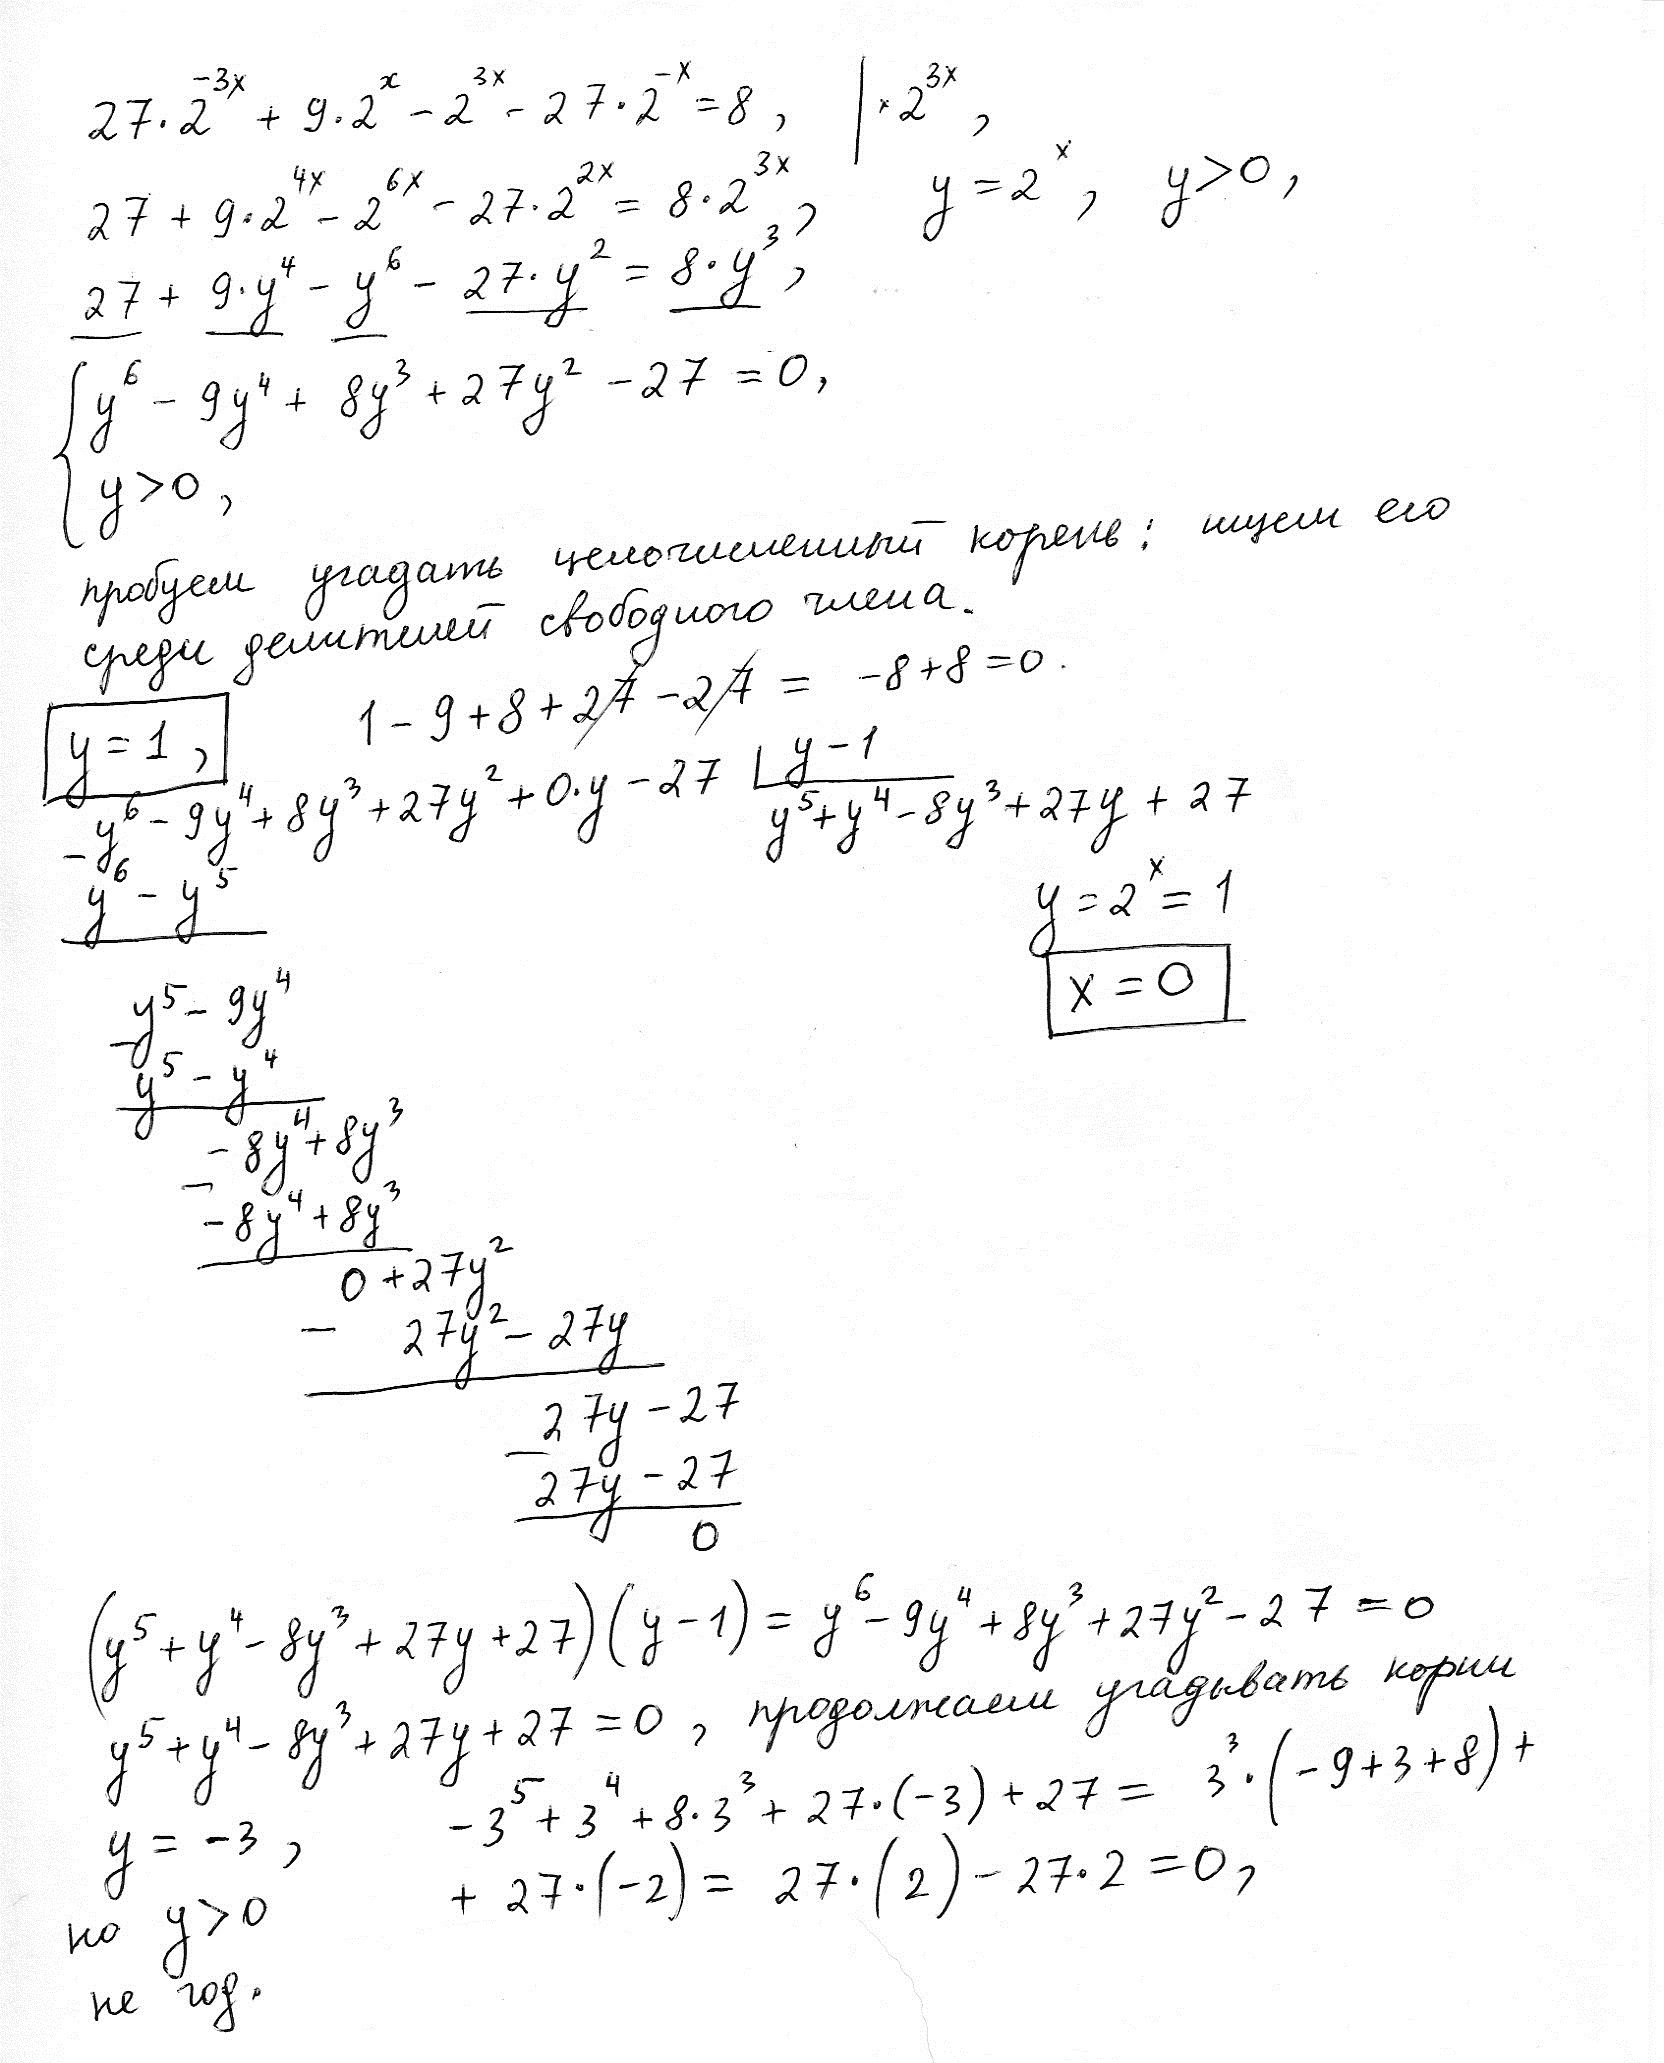 27·2^{-3x} + 9·2^{x} - 2^{3x} - 27·2^{-x} = 8, | · 2^{3x},
27 + 9·2^{4x} - 2^{6x} - 27·2^{2x} = 8·2^{3x}, y = 2^{x}, y>0,
27 + 9·y^{4} - y^{6} - 27·y^{2} = 8·y^{3},
{ y^{6} - 9y^{4} + 8y^{3} + 27y^{2} - 27 = 0,
y>0,
пробуем угадать целочисленный корень: ищем его
среди делителей свободного члена.
y = 1, 1 - 9 + 8 + 27 - 27 = -8+8 = 0.
y^{6} - 9y^{4} + 8y^{3} + 27y^{2} + 0·y - 27 | y - 1
- y^{6} - y^{5} y^{5} + y^{4} - 8y^{3} + 27y + 27
y = 2^{x} = 1
x = 0
y^{5} - 9y^{4}
- y^{5} - y^{4}
-8y^{4} + 8y^{3}
- -8y^{4} + 8y^{3}
0 + 27y^{2}
- 27y^{2} - 27y
27y - 27
- 27y - 27
0
(y^{5} + y^{4} - 8y^{3} + 27y + 27)(y - 1) = y^{6} - 9y^{4} + 8y^{3} + 27y^{2} - 27 = 0
y^{5} + y^{4} - 8y^{3} + 27y + 27 = 0, продолжаем угадывать корни
y = -3, -3^{5} + 3^{4} + 8·3^{3} + 27·(-3) + 27 = 3^{3}·(-9+3+8) +
+ 27·(-2) = 27·(2) - 27·2 = 0,
но y>0
не год.